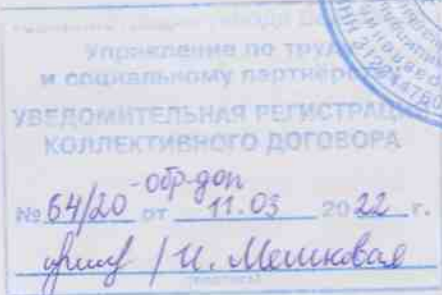 Управление по труду
и социальному партнёрс
УВЕДОМИТЕЛЬНАЯ РЕГИСТРАЦ
КОЛЛЕКТИВНОГО ДОГОВОРА
№ 64/20 -обр-доп от 11.03 2022 г.
/ И. Мешкова